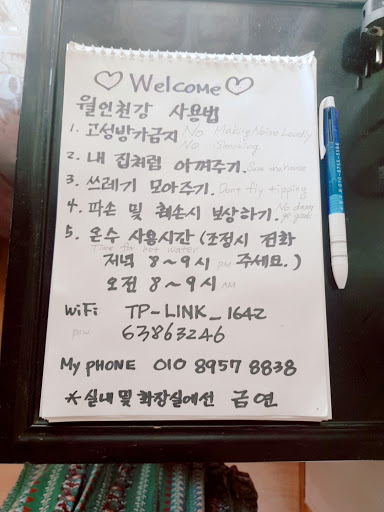 ♡ Welcome ♡
월인천강 사용법
1. 고성방가금지 No Making Noise Loudly
No Smoking
2. 내 집처럼 아껴주기. Same the house
3. 쓰레기 모아주기. Dont fly tipping
4. 파손 및 훼손시 보상하기. No damage goods
5. 온수 사용시간 (조정시 전화
Time for hot water
저녁 8~9시 PM 주세요.)
오전 8~9시 AM
WiFi TP-LINK_1642
PCW 63863246
My PHONE 010 8957 8838
*실내 및 화장실에선 금연